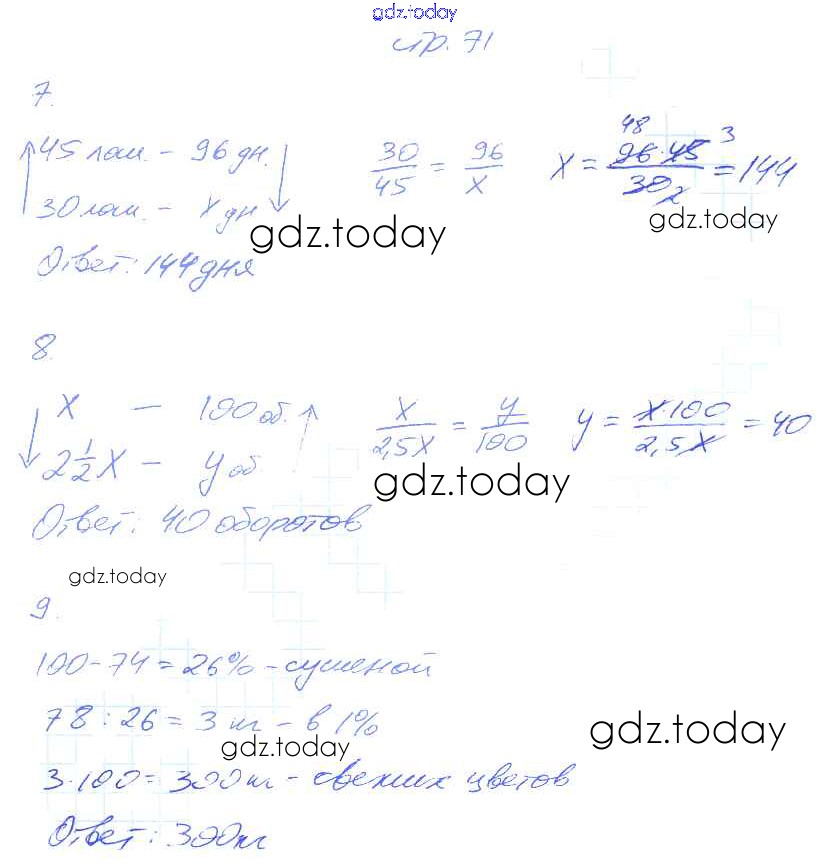 gdz.today
стр. 71
7.
45 лош. – 96 дн. 30/45 = 96/x x = 96·45/30 = 144
48 3 2
30 лош. – x дн
gdz.today
gdz.today
Ответ: 144 дня
8.
x – 100 об. x/2,5x = y/100 y = x·100/2,5x = 40
2 1/2 x – y об
gdz.today
Ответ: 40 оборотов
gdz.today
9.
100-74 = 26% - сушеной
78 : 26 = 3 кг - в 1%
gdz.today
gdz.today
3·100 = 300 кг - свежих цветов
Ответ: 300 кг